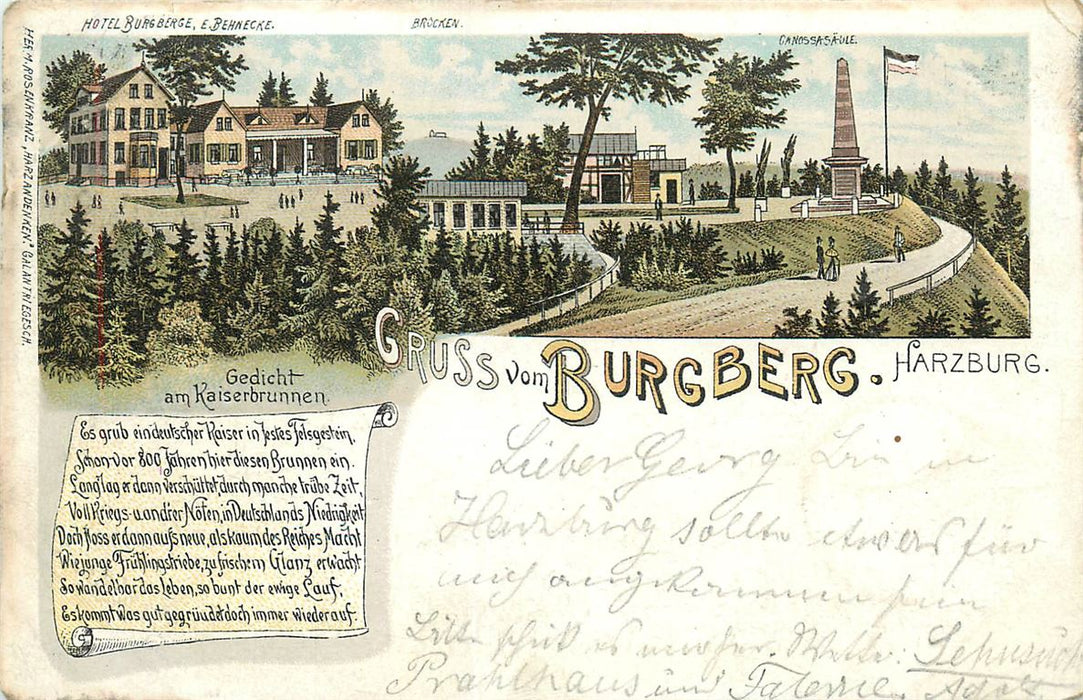 HOTEL BURGBERGE, E. BEHNECKE.
BROCKEN.
CANOSSASÄULE.
HERM. ROSENKRANZ, "HARZANDENKEN" GALANTRIEGESCH.
GRUSS vom BURGBERG. HARZBURG.
Gedicht
am Kaiserbrunnen.
Es grub ein deutscher Kaiser in festes Felsgestein,
Schon vor 800 Jahren hier diesen Brunnen ein.
Lang lag er dann verschüttet, durch manche trübe Zeit,
Voll Kriegs- u. andrer Nöten, in Deutschlands Niedrigkeit
Doch floss er dann aufs neue, als kaum des Reiches Macht
Wie junge Frühlingstriebe, zu frischem Glanz erwacht
So wandelbar das Leben, so bunt der ewige Lauf,
Es kommt was gut gegründet doch immer wieder auf.
Lieber Georg bin in
Harzburg sollte etwas für
mich angekommen sein
Bitte schick es Wette: Sehnsucht
Prahlhaus und